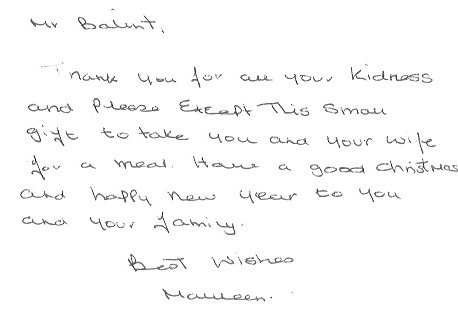 Mr Balint,
Thank you for all your Kidness
and Please Except This Small
gift to take you and your wife
for a meal. Have a good christmas
and happy new year to you
and your family.
Best Wishes
Maureen.